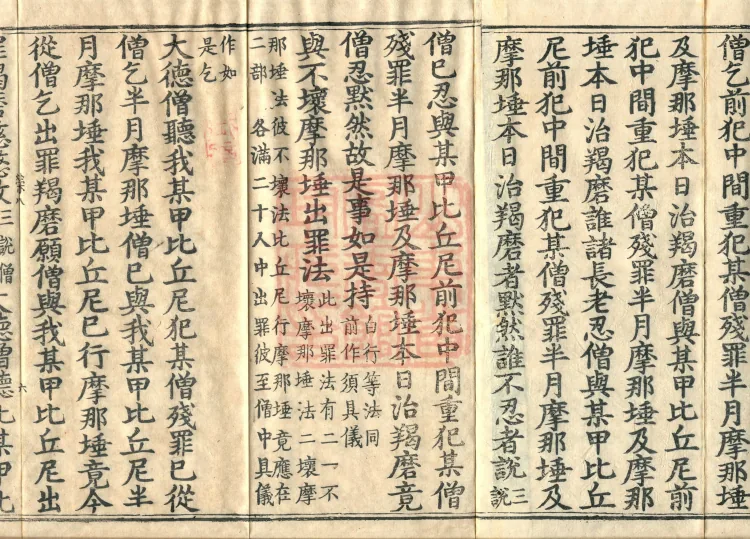 僧乞前犯中間重犯某僧殘罪半月摩那埵
及摩那埵本日治羯磨僧與某甲比丘尼前
犯中間重犯某僧殘罪半月摩那埵及摩那
埵本日治羯磨誰諸長老忍僧與某甲比丘
尼前犯中間重犯某僧殘罪半月摩那埵及
摩那埵本日治羯磨者默然誰不忍者說三說
僧已忍與某甲比丘尼前犯中間重犯某僧
殘罪半月摩那埵及摩那埵本日治羯磨竟
僧忍默然故是事如是持白行等法同前作須具儀
與不壞摩那埵出罪法此出罪法有二一不壞摩那埵法二壞摩
那埵法彼不壞法比丘尼行摩那埵竟應在
二部各滿二十人中出罪彼至僧中具儀
作如
是乞
大德僧聽我某甲比丘尼犯某僧殘罪已從
僧乞半月摩那埵僧已與我某甲比丘尼半
月摩那埵我某甲比丘尼已行摩那埵竟今
從僧乞出罪羯磨願僧與我某甲比丘尼出
六